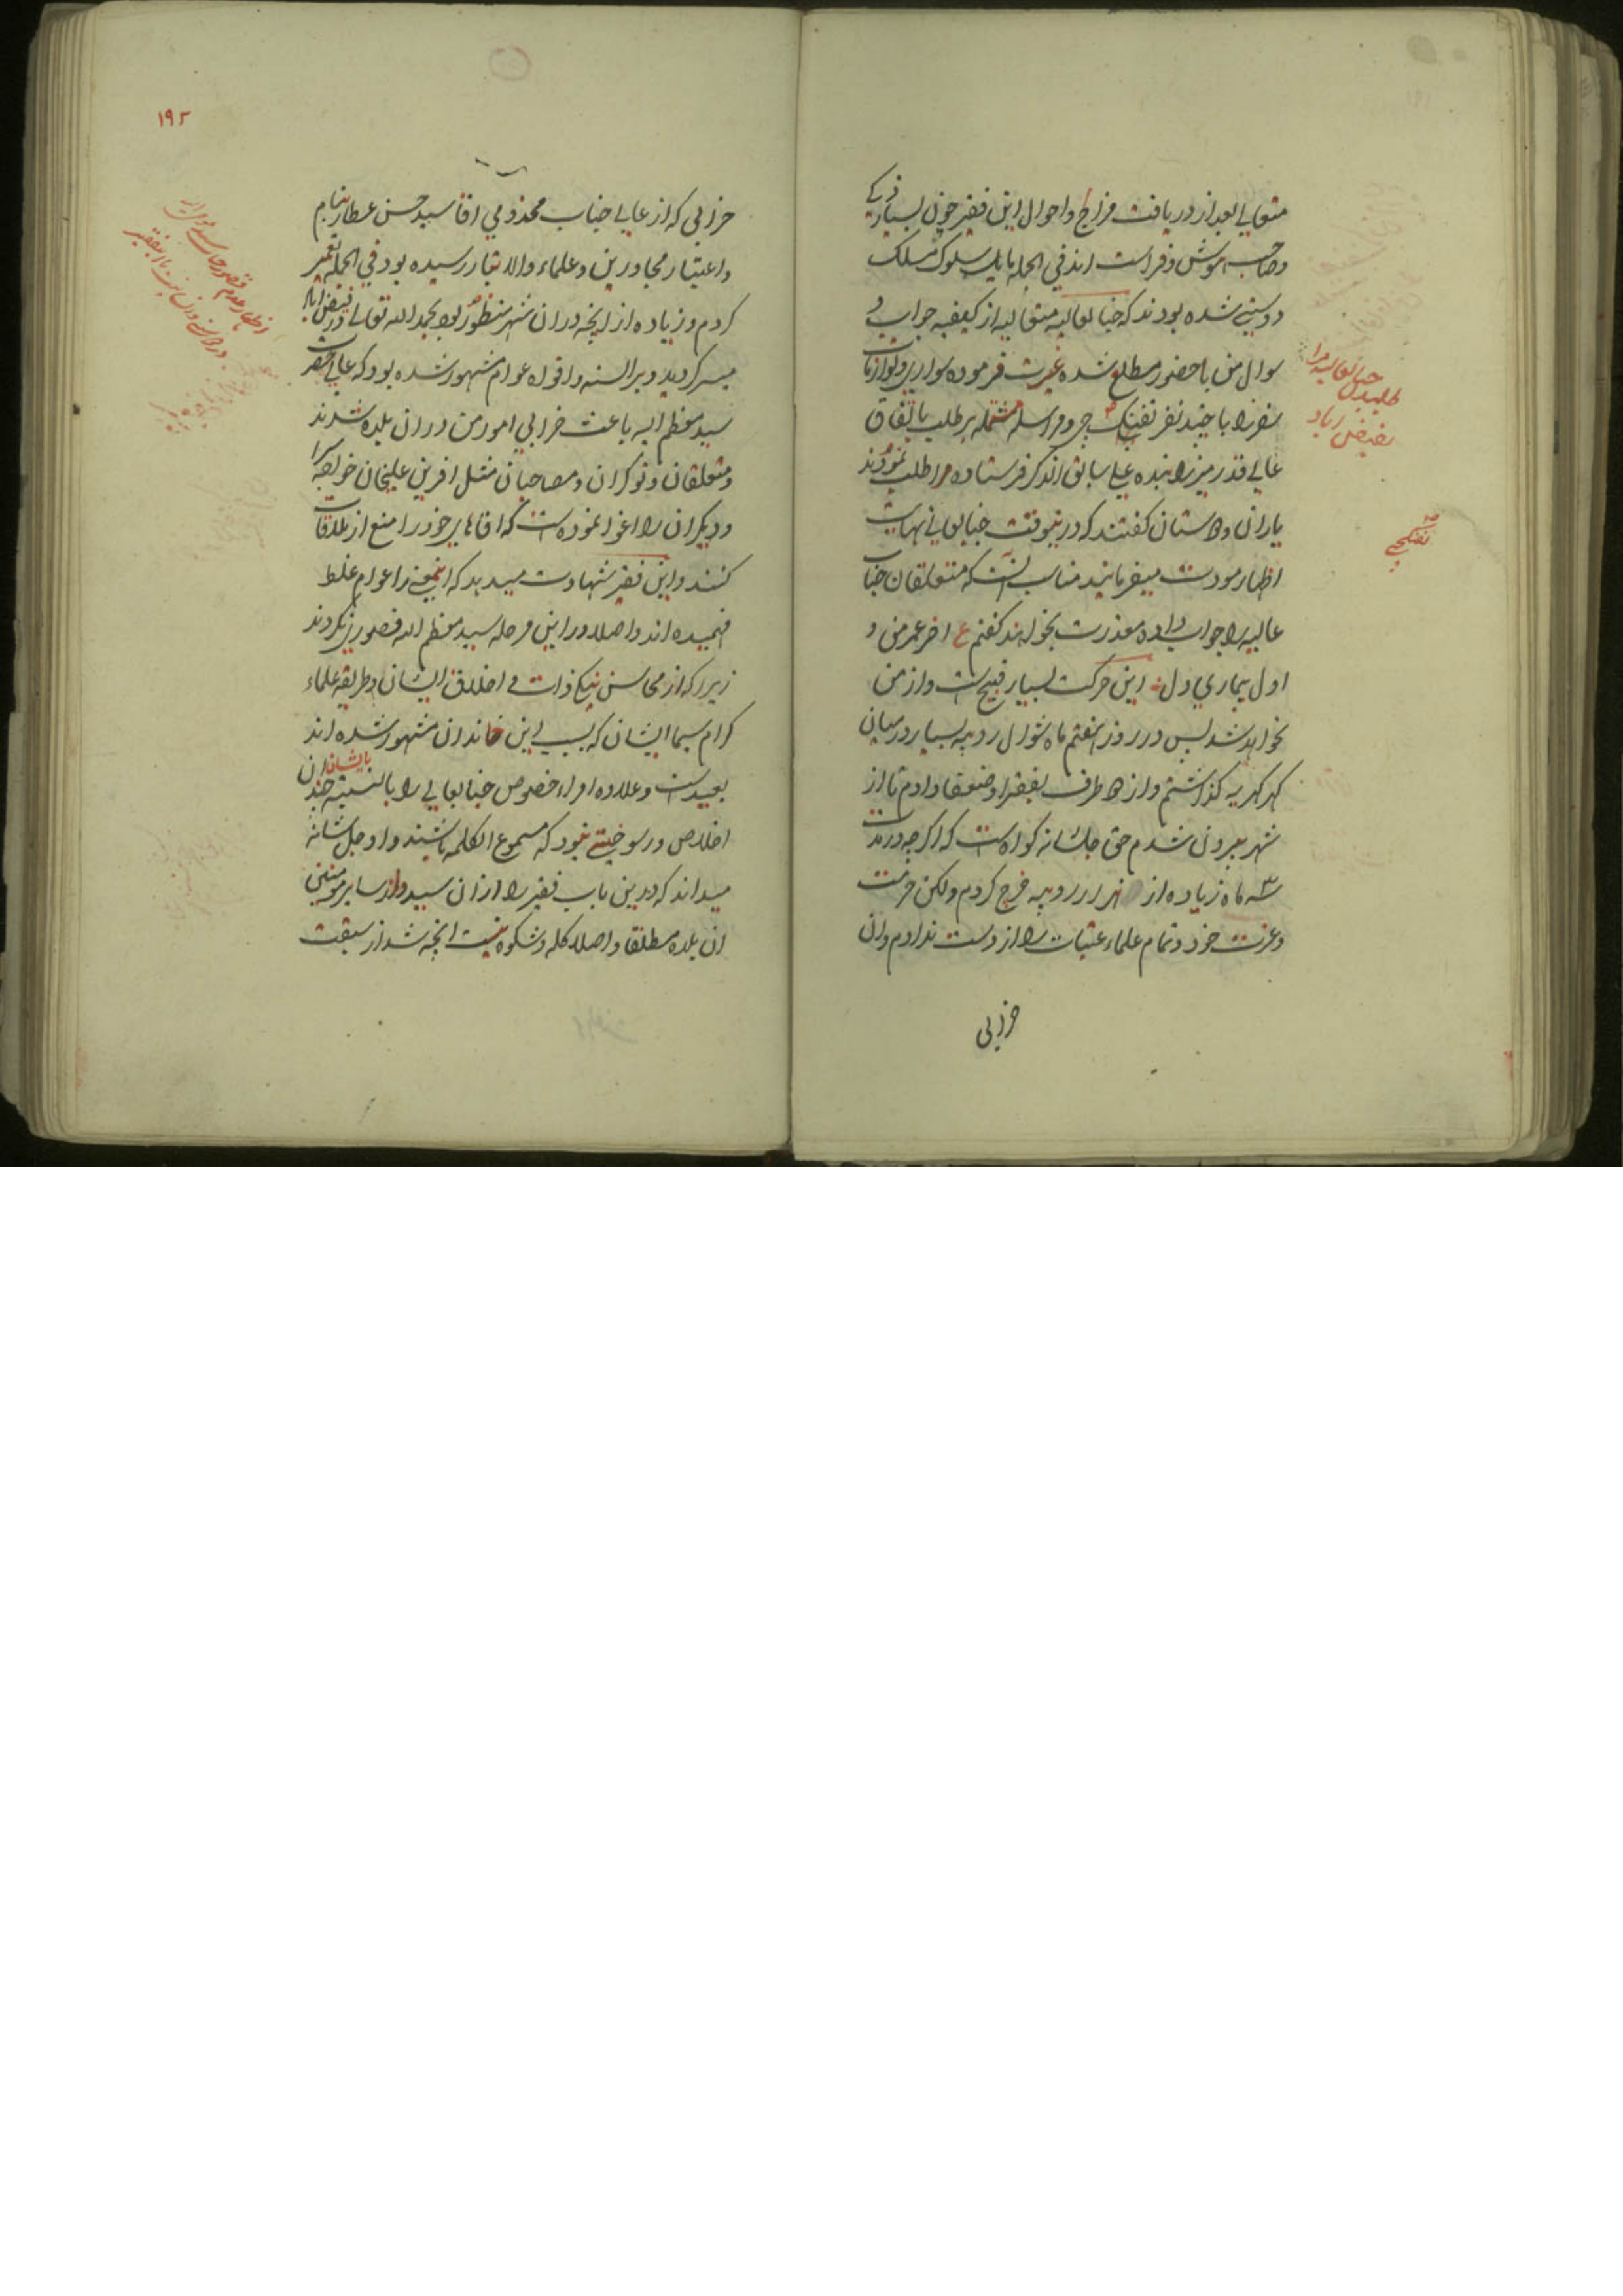 متعالی بعد از دریافت مزاج و احوال این فقیر چون بسیار ذکی
و صاحب هوش و فراست اند فی الجمله بابل سلوک مسلک
دوستی شده بودند که جنابعالیه متعالیه از کیفیه جواب و
سوال من با حضور مطلع شده غیرت فرموده سواری و لوازمات
سفر را با چند نفر تفنگچی و مراسله مشتمله بر طلب باتفاق
عالی قدر میرزا بنده علی سابق الذکر فرستاده مرا طلب نمودند
یاران و دوستان گفتند که درینوقت جنابعالی نهایت
اظهار مودت میفرمایند مناسب آنست که متعلقان جناب
عالیه را جواب داده معذرت بخواهند گفتم ع اخر عمر من و
اول بیماری دل این حرکت بسیار قبیح است و از من
نخواهد شد پس در روز هفتم ماه شوال روپیه بسیار در میان
کهرکهریه گذاشتم و از هر طرف بفقرا و ضعفا دادم تا از
شهر بیرون شدم حق جلشانه گواه است که اگرچه در مدت
سه ماه زیاده از هزار روپیه خرج کردم ولکن حرمت
و عزت خود و تمام علماء عتبات را از دست ندادم و ان
خرابی
جنابعالیه مرا
طلبیدن
بفیض اباد
تفنگچی
۱۹۲
خرابی که از عالی جناب مخدومی اقا سید حسن عطار بنام
و اعتبار مجاورین و علماء والاتبار رسیده بود فی الجمله تعمیر
کردم و زیاده از انچه دران شهر منظور بود بحمد الله تعالی در فیض اباد
میسر گردید و بر السنه و افواه عوام مشهور شده بود که عالیحضرت
سید معظم الیه باعث خرابی امور من دران بلده شدند
و متعلقان و نوکران و مصاحبان مثل افرین علیخان خواجه سرا
و دیگران را اغوا نموده است که اقاهای خود را منع از ملاقات
کنند و این فقیر شهادت میدهد که اینمعنی را عوام غلط
فهمیده اند و اصلا در این مرحله سید معظم الیه قصوری نکردند
زیرا که از محاسن نیک ذات و اخلاق ایشان و طریقه علماء
کرام سیما ایشان که بسبب این خاندان مشهور شده اند
بعید است و علاوه امراء خصوص جنابعالی را بالنسبة بایشان چندان
اخلاص و رسوخیتی نبود که مسموع الکلمه باشند و او جل شانه
میداند که درین باب فقیر را از ان سید و از سایر مومنین
ان بلده مطلقا و اصلا گله و شکوه نیست انچه شد از سبقت